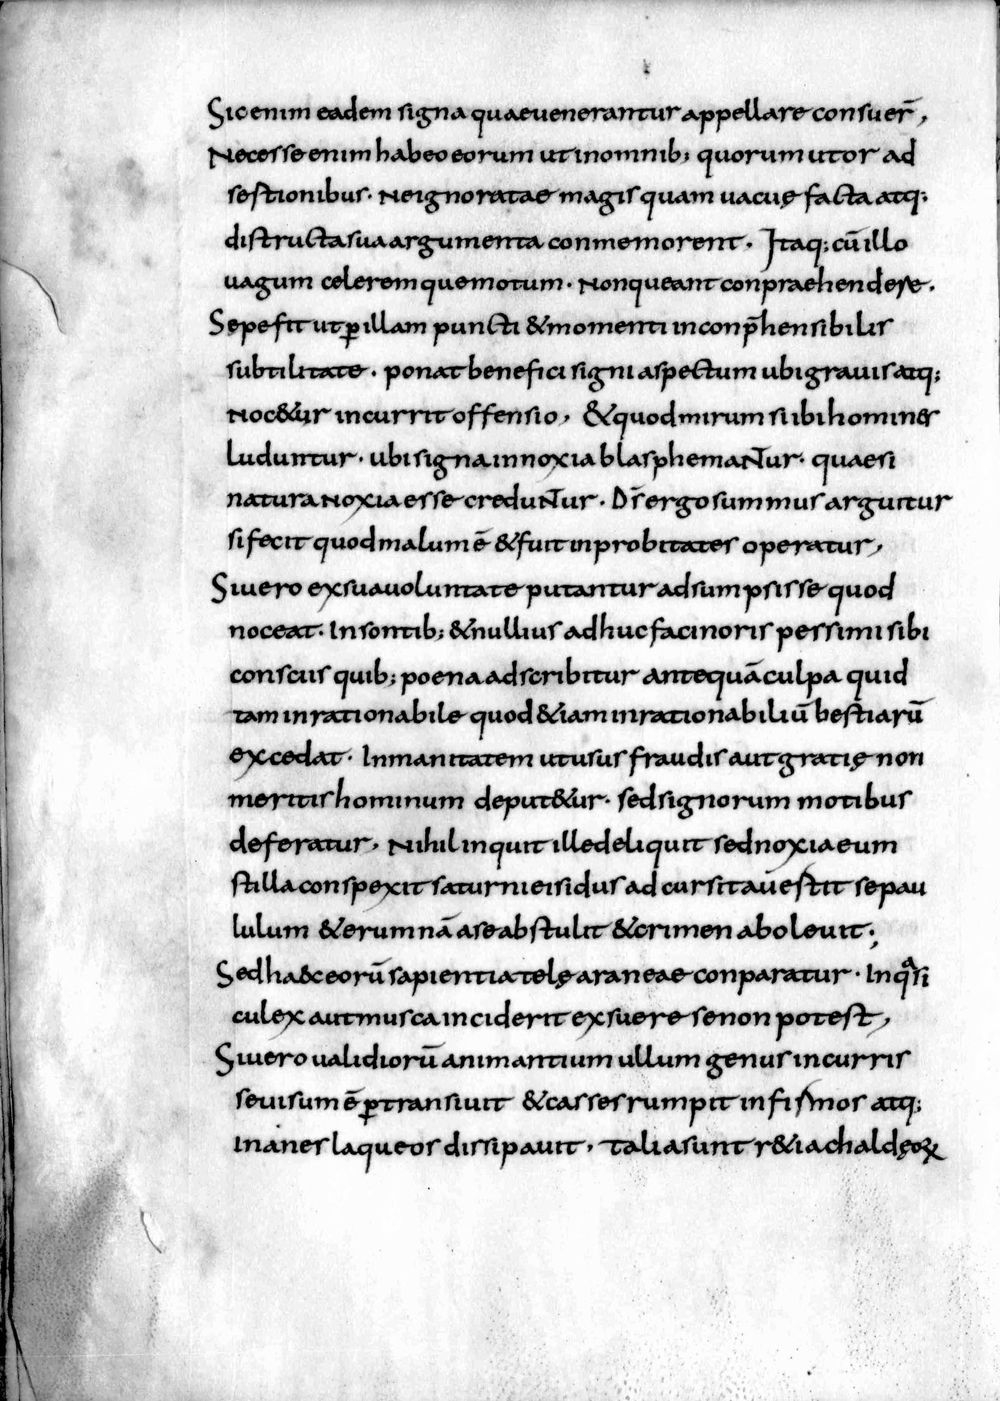 Sic enim eadem signa quae uenerantur appellare consuer̄,
Necesse enim habeo eorum ut in omnib; quorum utor ad
sestionibus· ne ignoratae magis quam uacuę facta atq;
distructa sua argumenta conmemorent. Itaq; cū illo
uagum celeremque motum· non queant conpraehendere.
Sepe fit ut ꝑ illam puncti & momenti inconp̄hensibilis
subtilitate. ponat benefici signi aspectum ubi grauis atq;
noc&ur incurrit offensio, & quod mirum si ibi homines
luduntur· ubi signa innoxia blasphemantur· quae si
natura noxia esse creduntur· Ds̄ ergo summus arguitur
si fecit quod malum ē & fuit inprobitates operatur,
Si uero ex sua uoluntate putantur adsumpsisse quod
noceat· Insontib; & nullius adhuc facinoris pessimi sibi
consciis quib; poena adscribitur antequā culpa quid
tam inrationabile quod &iam inrationabiliū bestiarū
excedat· Inmanitatem ut usus fraudis aut gratię non
meritis hominum deput&ur· sed signorum motibus
deferatur, Nihil inquit ille deliquit sed noxia eum
stilla conspexit saturni ei sidus adcursit aūestit se pau
lulum & erumnā a se abstulit & crimen aboleuit;
Sed haec eorū sapientia telę araneae conparatur· In qᵃ si
culex aut musca inciderit exsuere se non potest,
Si uero ualidiorū animantium ullum genus incurris
se uisum ē ꝑtransiuit & casses rumpit infirmos atq;
inanes laqueos dissipauit, talia sunt r&ia chaldęoꝝ